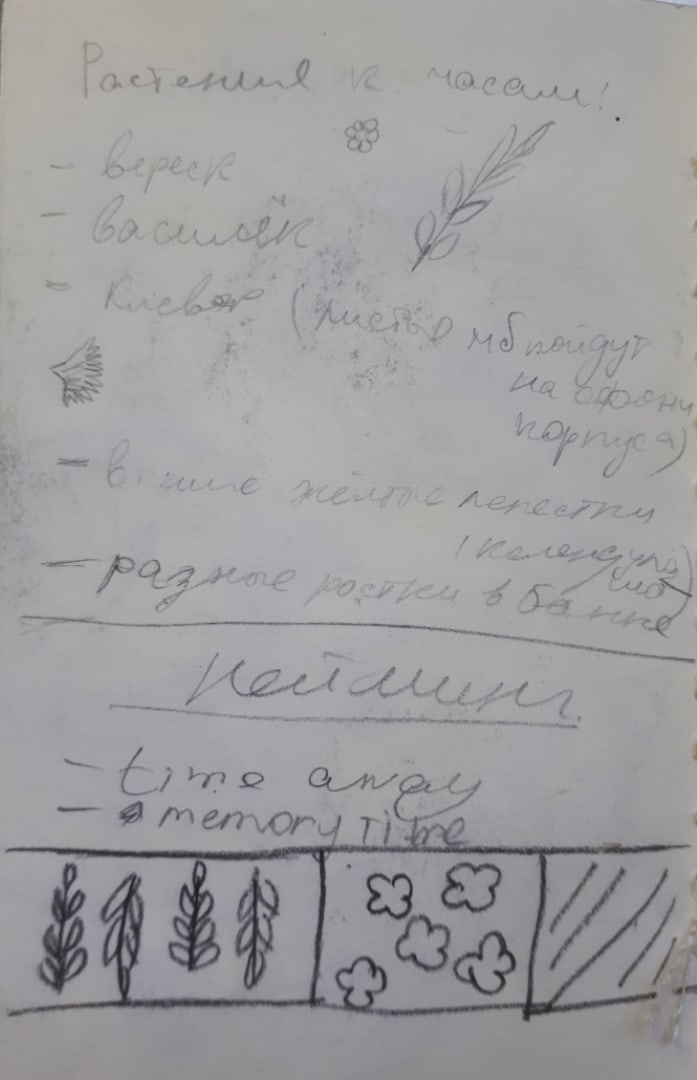 Растения к часам!
- вереск
- василёк
- клевер (листья мб пойдут
на
корпуса)
- жёлтые лепестки
(календула
- разные ростки в банке
Нейминг
- time away
- memory time